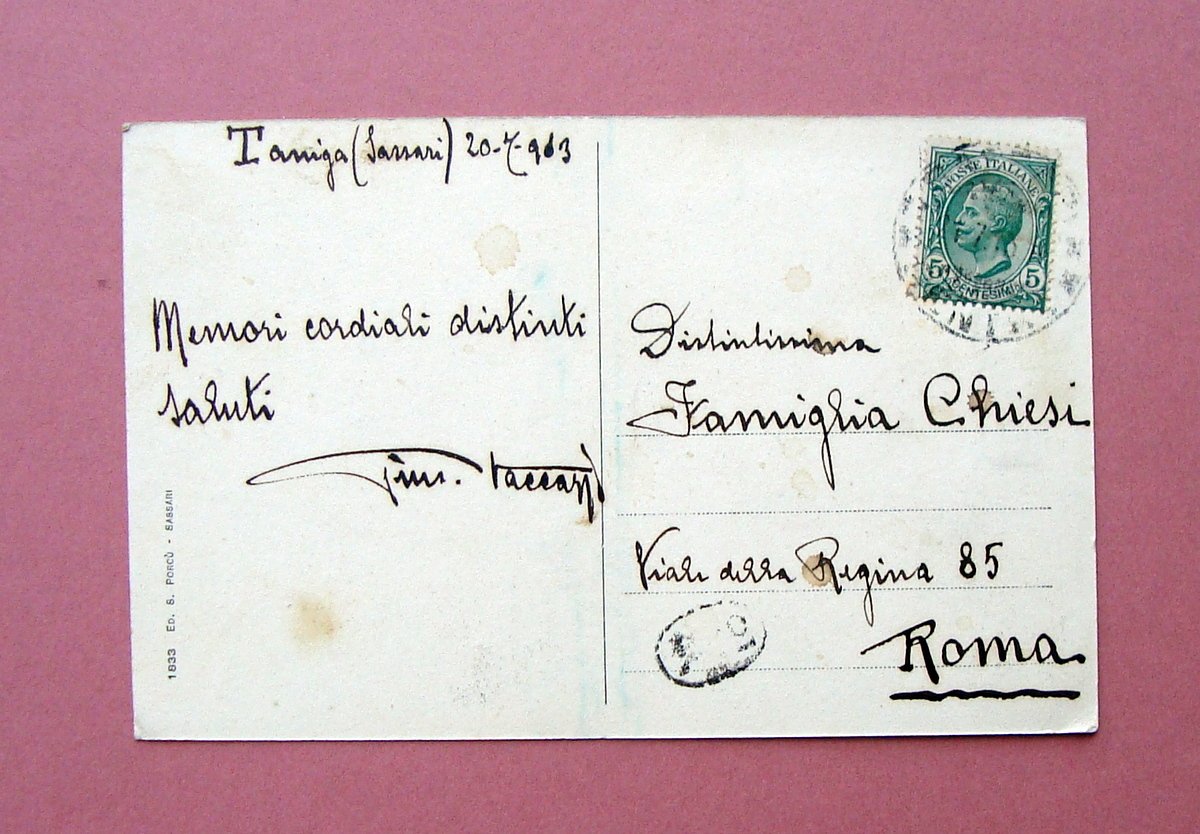 Taniga (Sassari) 20-7-913
Memori cordiali distinti
saluti
Vaccari
1833 ED. S. PORCÙ - SASSARI
POSTE ITALIANE
5 5
CENTESIMI
Distintissima
Famiglia Chiesi
Viale della Regina 85
Roma